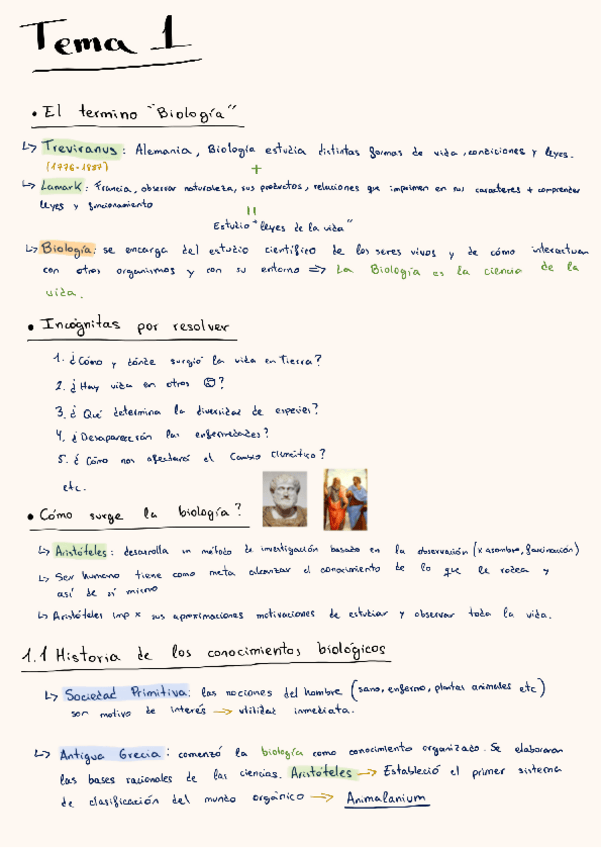 Tema 1
• El termino "Biología"
↳ Treviranus: Alemania, Biología estudia distintas formas de vida, condiciones y leyes.
(1776-1837) +
↳ Lamark: Francia, observar naturaleza, sus productos, relaciones que imprimen en sus caracteres + comprender
leyes y funcionamiento =
Estudio "leyes de la vida"
↳ Biología: se encarga del estudio científico de los seres vivos y de cómo interactuan
con otros organismos y con su entorno => La Biología es la ciencia de la
vida.
• Incógnitas por resolver
1. ¿Cómo y dónde surgió la vida en Tierra?
2. ¿Hay vida en otros ?
3. ¿Qué determina la diversidad de especies?
4. ¿Desaparecerán las enfermedades?
5. ¿Cómo nos afectará el Cambio Climático?
etc.
• Cómo surge la biología?
↳ Aristóteles: desarrolla un método de investigación basado en la observación (x asombro, fascinación)
↳ Ser humano tiene como meta alcanzar el conocimiento de lo que le rodea y
así de sí mismo
↳ Aristóteles imp x sus aproximaciones motivaciones de estudiar y observar toda la vida.
1.1 Historia de los conocimientos biológicos
↳ Sociedad Primitiva: las nociones del hombre (sano, enfermo, plantas animales etc)
son motivo de interés → utilidad inmediata.
↳ Antigua Grecia: comenzó la biología como conocimiento organizado. Se elaboraron
las bases racionales de las ciencias. Aristóteles → Estableció el primer sistema
de clasificación del mundo orgánico → Animalanium